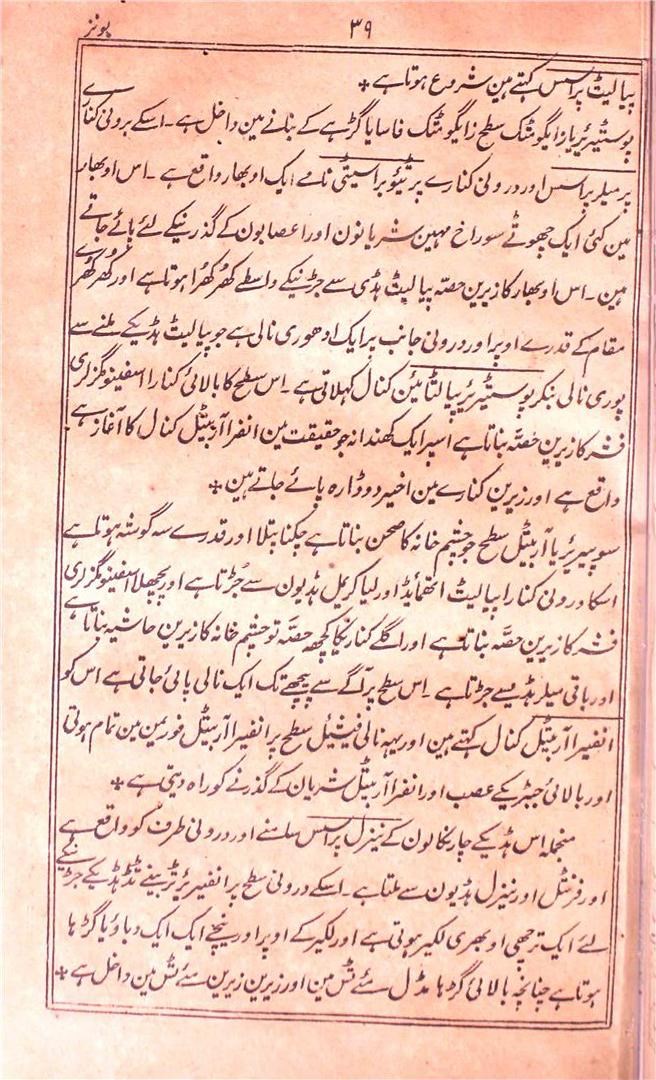 ۳۹ بونز
پیالیٹ پراسس کہتے ہین شروع ہوتا ہے *
پوسٹیرئر یا زایگومٹک سطح زایگومٹک فاسا یا گڑہے کے بنانے مین داخل ہے۔ اسکے برونی کنارے
پر میلر پراسس اور درونی کنارے پر ٹیوبراسیٹی نامے ایک اوبھار واقع ہے۔ اس اوبھار
مین کئی ایک چھوٹے سوراخ مہین شریانون اور اعصابون کے گذرنیکے لئے پائے جاتے
ہین۔ اس اوبھار کا زیرین حصہ پیالیٹ ہڈی سے جڑنیکے واسطے کھرکھرا ہوتا ہے اور کھرکھرے
مقام کے قدرے اوپر اور درونی جانب پر ایک ادھوری نالی ہے جو پیالیٹ ہڈیکے ملنے سے
پوری نالی بنکر پوسٹیرئر پیالٹائین کنال کہلاتی ہے۔ اس سطح کا بالائی کنارا اسفینومگزلری
فشر کا زیرین حصّہ بناتا ہے اسپر ایک کھندانہ جو حقیقت مین انفرا آربیٹل کنال کا آغاز ہے
واقع ہے اور زیرین کنارے مین اخیر دو ڈاڑہ پائے جاتے ہین *
سوپیرئر یا آربیٹل سطح جو چشم خانہ کا صحن بناتا ہے چکنا پتلا اور قدرے سہ گوشہ ہوتا ہے
اسکا درونی کنارا پیالیٹ اتھمائیڈ اور لیاکریمل ہڈیون سے جُڑتا ہے اور پچھلا اسفینومگزلری
فشر کا زیرین حصّہ بناتا ہے اور اگلے کناریکا کچھ حصّہ تو چشم خانہ کا زیرین حاشیہ بناتا ہے
اور باقی میلر ہڈیسے جڑتا ہے۔ اس سطح پر آگے سے پیچھے تک ایک نالی پائی جاتی ہے اس کو
انفیرا آربیٹل کنال کہتے ہین اور یہہ نالی فیشیل سطح پر انفیرا آربیٹل فورمین مین تمام ہوتی
اور بالائی جبڑیکے عصب اور انفرا آربیٹل شریان کے گذرنے کو راہ دیتی ہے *
منجملہ اس ہڈیکے چار نکالون کے نیزل پراسس سامنے اور درونی طرف کو واقع ہے
اور فرنٹل اور نیزل ہڈیون سے ملتا ہے۔ اسکے درونی سطح پر انفیرئر ٹربینے ٹڈ ہڈیکے جڑنیکے
لئے ایک ترچھی اوبھری لکیر ہوتی ہے اور لکیر کے اوپر اور نیچے ایک ایک دباؤ یا گڑہا
ہوتا ہے چنانچہ بالائی گڑہا مڈل مئے ٹس مین اور زیرین زیرین مئے ٹس مین داخل ہے *